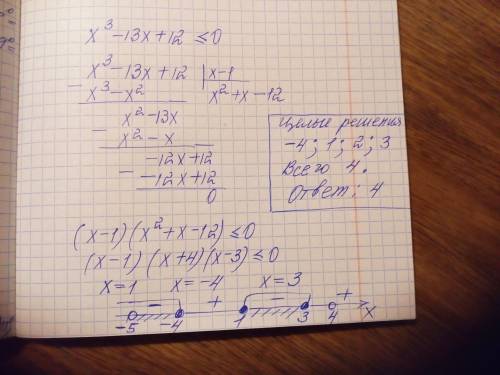 x³ -13x+12 ≤0
x³ -13x+12 | x-1
- x³ - x²   x²+x-12
x² -13x
- x² - x
-12x+12
- -12x+12
0
Целые решения
-4; 1; 2; 3
Всего 4.
Ответ: 4
(x-1)(x²+x-12)≤0
(x-1)(x+4)(x-3)≤0
x=1 x=-4 x=3
- + - +
-5 -4 1 3 4 x